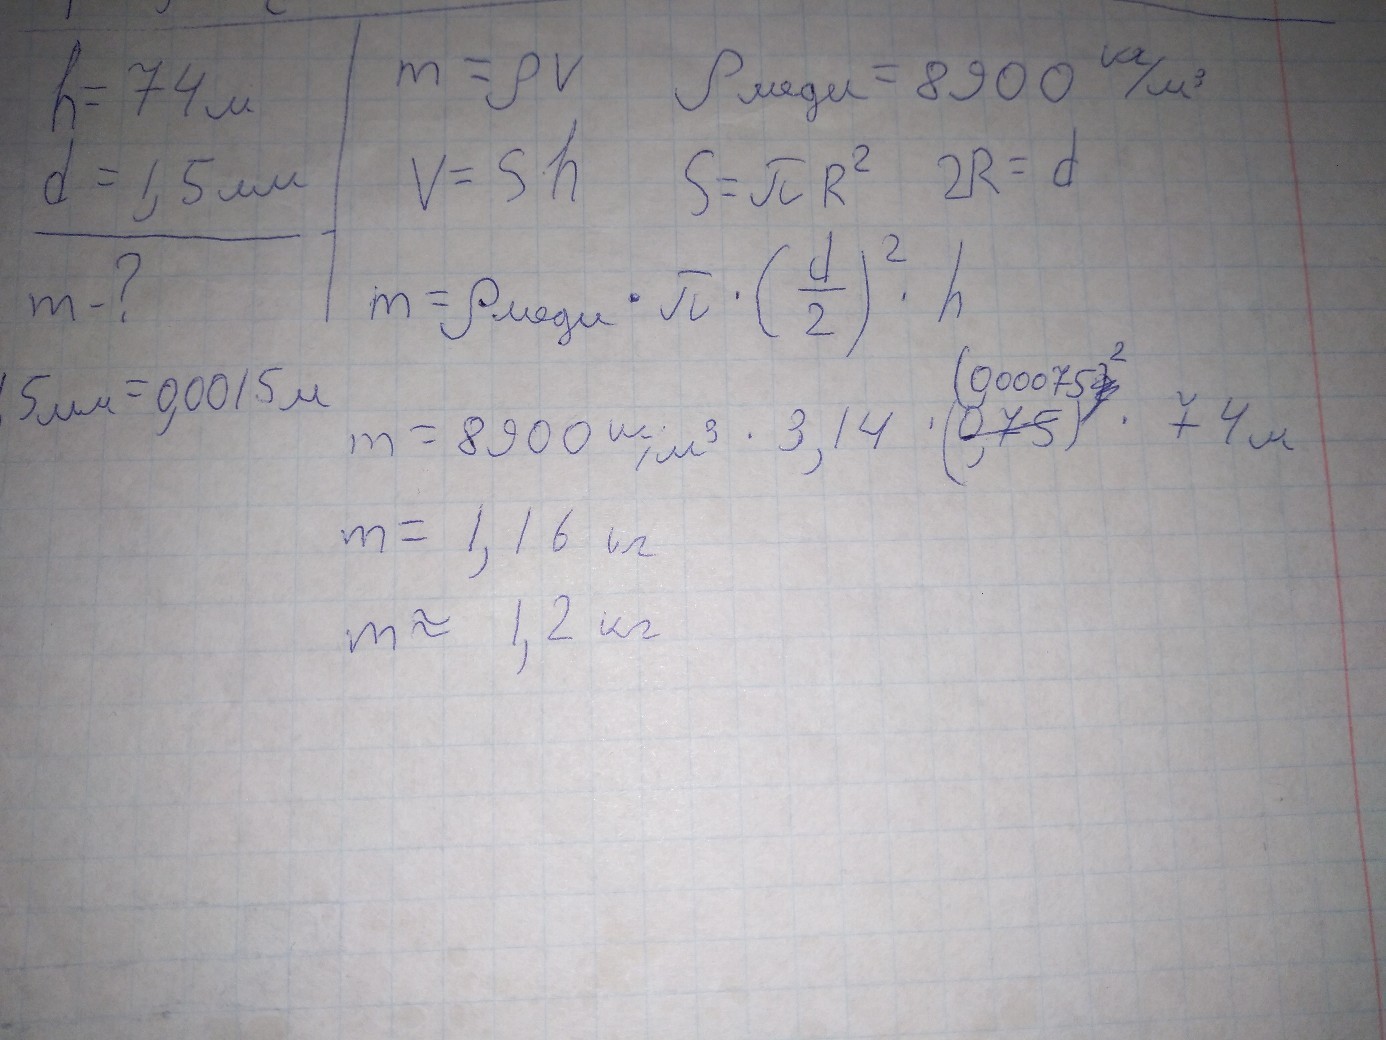 h = 74 м
d = 1,5 мм
m - ?
5мм = 0,0015 м
m = ρV ρмеди = 8900 кг/м³
V = S h S = π R² 2R = d
m = ρмеди · π · (d/2)² · h
(0,00075)²
m = 8900 кг/м³ · 3,14 · (0,75) · 74 м
m = 1,16 кг
m ≈ 1,2 кг